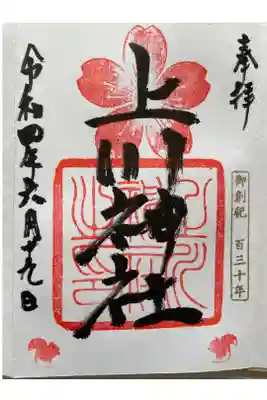 奉拝
御創祀 百三十年
上川神社
令和四年六月廿九日